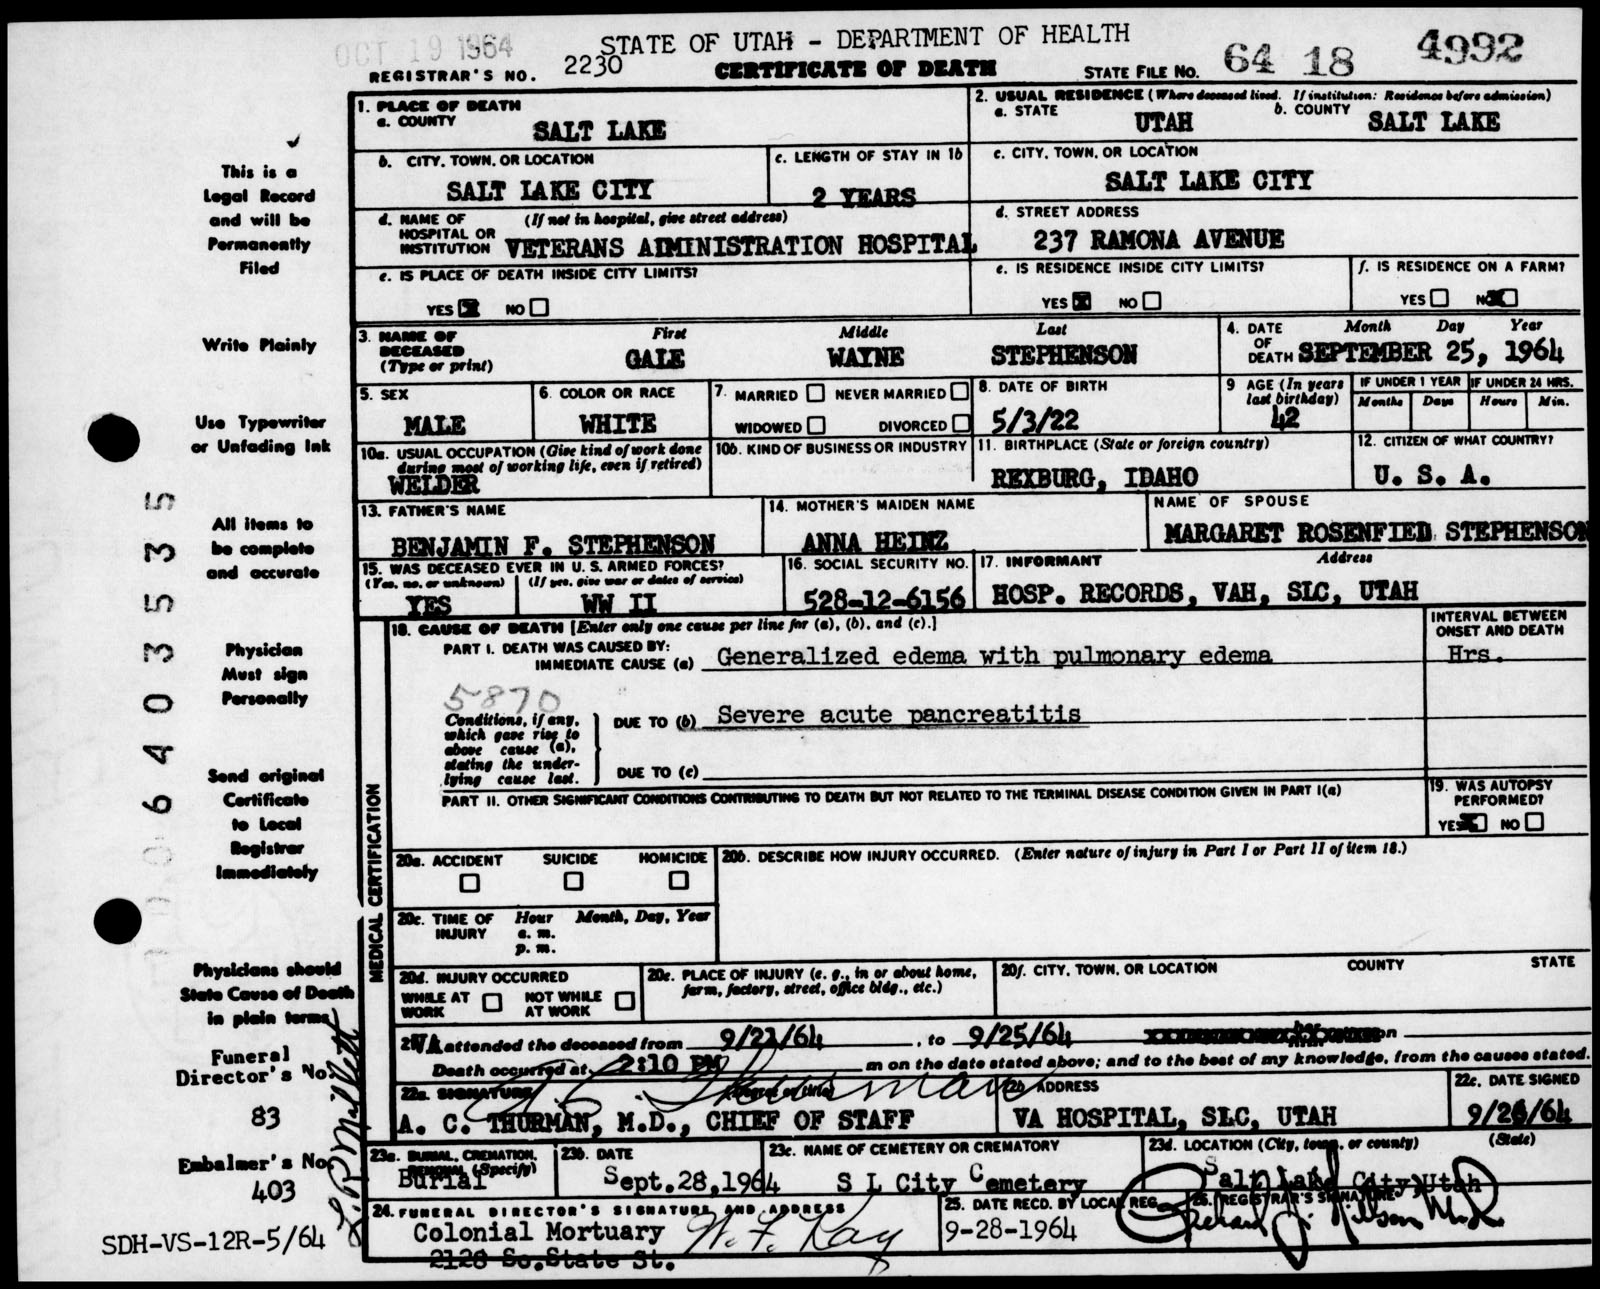 OCT 19 1964
STATE OF UTAH - DEPARTMENT OF HEALTH
REGISTRAR'S NO. 2230 CERTIFICATE OF DEATH STATE FILE NO. 64 18 4992
This is a
Legal Record
and will be
Permanently
Filed
Write Plainly
Use Typewriter
or Unfading Ink
All items to
be complete
and accurate
Physician
Must sign
Personally
Send original
Certificate
to Local
Registrar
Immediately
Physicians should
State Cause of Death
in plain terms
Funeral
Director's No.
83
Embalmer's No.
403
SDH-VS-12R-5/64
6 4 0 3 5 5 3 5
1. PLACE OF DEATH
a. COUNTY
SALT LAKE
2. USUAL RESIDENCE (Where deceased lived. If institution: Residence before admission)
a. STATE UTAH b. COUNTY SALT LAKE
b. CITY, TOWN, OR LOCATION
SALT LAKE CITY
c. LENGTH OF STAY IN 1b
2 YEARS
c. CITY, TOWN, OR LOCATION
SALT LAKE CITY
d. NAME OF (If not in hospital, give street address)
HOSPITAL OR
INSTITUTION VETERANS ADMINISTRATION HOSPITAL
d. STREET ADDRESS
237 RAMONA AVENUE
e. IS PLACE OF DEATH INSIDE CITY LIMITS?
YES X NO
e. IS RESIDENCE INSIDE CITY LIMITS?
YES X NO
f. IS RESIDENCE ON A FARM?
YES NO X
3. NAME OF First Middle Last
DECEASED
(Type or print) GALE WAYNE STEPHENSON
4. DATE Month Day Year
OF
DEATH SEPTEMBER 25, 1964
5. SEX
MALE
6. COLOR OR RACE
WHITE
7. MARRIED NEVER MARRIED
WIDOWED DIVORCED
8. DATE OF BIRTH
5/3/22
9 AGE (In years
last birthday)
42
IF UNDER 1 YEAR IF UNDER 24 HRS.
Months Days Hours Min.
10a. USUAL OCCUPATION (Give kind of work done
during most of working life, even if retired)
WELDER
10b. KIND OF BUSINESS OR INDUSTRY
11. BIRTHPLACE (State or foreign country)
REXBURG, IDAHO
12. CITIZEN OF WHAT COUNTRY?
U. S. A.
13. FATHER'S NAME
BENJAMIN F. STEPHENSON
14. MOTHER'S MAIDEN NAME
ANNA HEINZ
NAME OF SPOUSE
MARGARET ROSENFIED STEPHENSON
15. WAS DECEASED EVER IN U. S. ARMED FORCES?
(Yes, no, or unknown) (If yes, give war or dates of service)
YES WW II
16. SOCIAL SECURITY NO.
528-12-6156
17. INFORMANT Address
HOSP. RECORDS, VAH, SLC, UTAH
MEDICAL CERTIFICATION
18. CAUSE OF DEATH [Enter only one cause per line for (a), (b), and (c).]
PART I. DEATH WAS CAUSED BY:
IMMEDIATE CAUSE (a) Generalized edema with pulmonary edema
INTERVAL BETWEEN
ONSET AND DEATH
Hrs.
5870
Conditions, if any,
which gave rise to
above cause (a),
stating the under-
lying cause last.
DUE TO (b) Severe acute pancreatitis
DUE TO (c)
PART II. OTHER SIGNIFICANT CONDITIONS CONTRIBUTING TO DEATH BUT NOT RELATED TO THE TERMINAL DISEASE CONDITION GIVEN IN PART I(a)
19. WAS AUTOPSY
PERFORMED?
YES X NO
20a. ACCIDENT SUICIDE HOMICIDE
20b. DESCRIBE HOW INJURY OCCURRED. (Enter nature of injury in Part I or Part II of item 18.)
20c. TIME OF Hour Month, Day, Year
INJURY a. m.
p. m.
20d. INJURY OCCURRED
WHILE AT WORK NOT WHILE AT WORK
20e. PLACE OF INJURY (e. g., in or about home,
farm, factory, street, office bldg., etc.)
20f. CITY, TOWN, OR LOCATION COUNTY STATE
VA attended the deceased from , to 9/25/64 on
Death occurred at 2:10 PM m on the date stated above; and to the best of my knowledge, from the causes stated.
22a. SIGNATURE A C Thurman
A. C. THURMAN, M.D., CHIEF OF STAFF
22b ADDRESS
VA HOSPITAL, SLC, UTAH
22c. DATE SIGNED
9/26/64
23a. BURIAL, CREMATION,
REMOVAL (Specify)
Burial
23b. DATE
Sept.28,1964
23c. NAME OF CEMETERY OR CREMATORY
S L City Cemetery
23d. LOCATION (City, town, or county) (State)
Salt Lake City Utah
24. FUNERAL DIRECTOR'S SIGNATURE AND ADDRESS
Colonial Mortuary W. F. Kay
2128 So.State St.
25. DATE RECD. BY LOCAL REG.
9-28-1964
26. REGISTRAR'S SIGNATURE